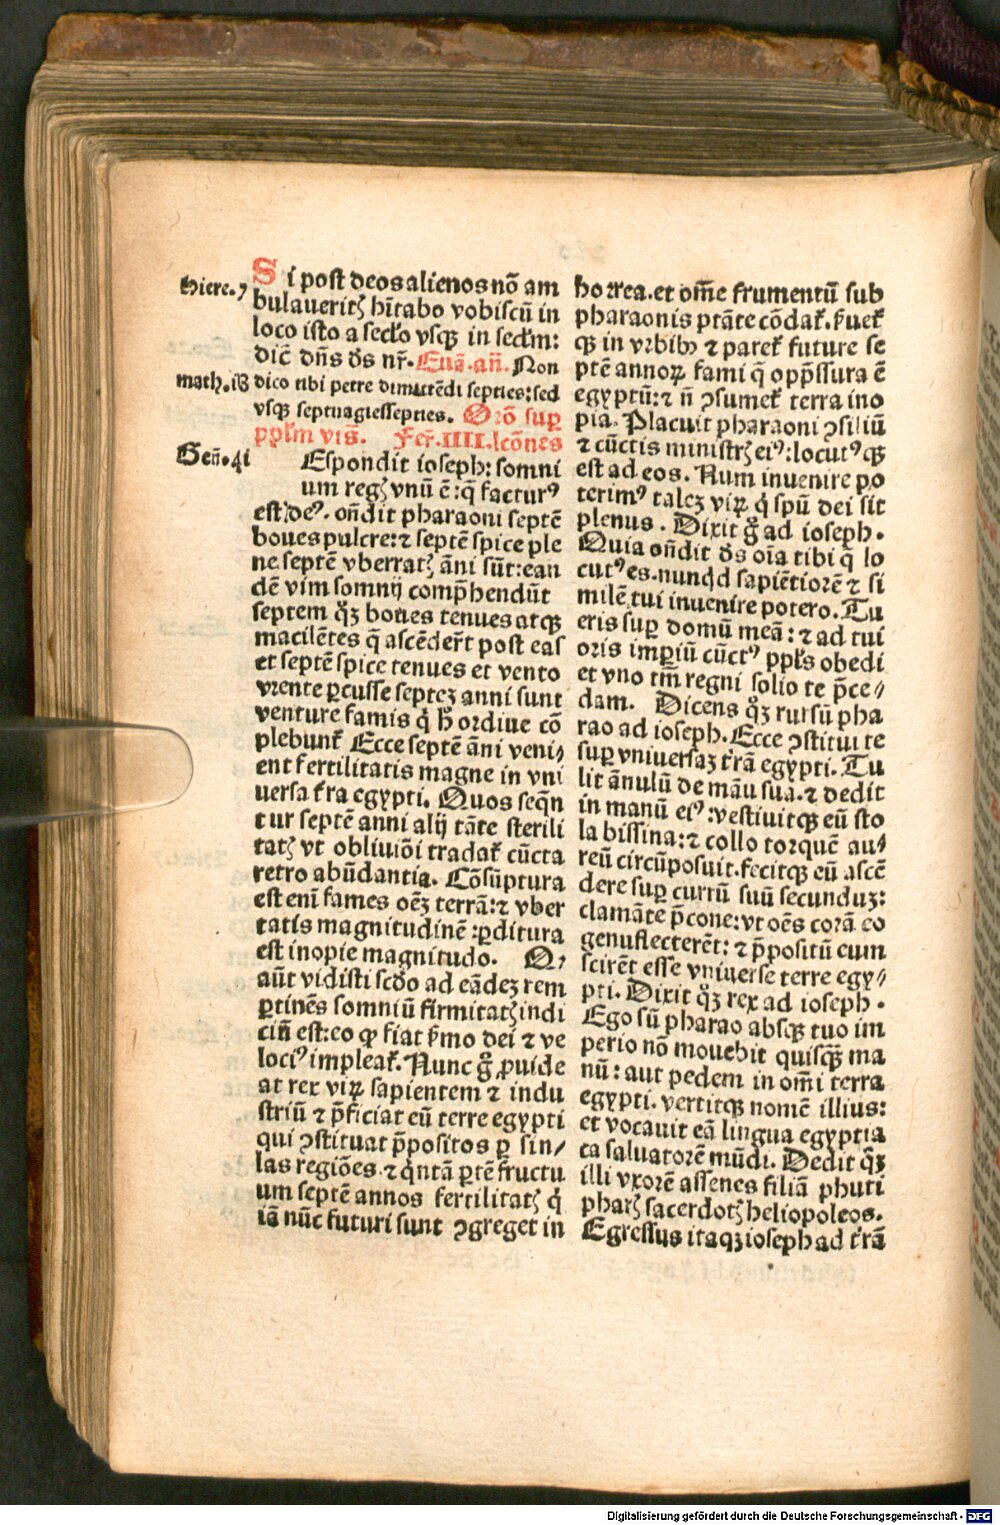 Hiere.7
Si post deos alienos nō am
bulaueritꝭ hītabo vobiscū in
loco isto a secło vsqꝫ in secłm:
dic̄ dn̄s ds̄ nr̄. Euā. an̄. Non
math.i8 dico tibi petre dimittēdi septies: sed
vsqꝫ septuagiessepties. Orō suꝑ
pplm vis̄. Fer̄. IIII. lcōnes
Gen̄.41
Espondit ioseph: somni
um regꝭ vnū ē: q̄ facturꝰ
est deꝰ. on̄dit pharaoni septē
boues pulcre: ⁊ septē spice ple
ne septē vbertatꝭ āni sūt: ean
dē vim somnij comp̄hendūt
septem qͦꝫ boues tenues atqꝫ
macilētes q̄ ascēder̄t post eas
et septē spice tenues et vento
vrente ꝑcusse septeꝫ anni sunt
venture famis q̇ h̄ ordine cō
plebunt᷒ Ecce septē āni veni/
ent fertilitatis magne in vni
uersa t̄ra egypti. Quos seq̄n
tur septē anni alij tāte sterili
tatꝭ vt obliuiōi tradat᷒ cūcta
retro abūdantia. Cōsūptura
est eni̅ fames oēꝫ terrā: ⁊ vber
tatis magnitudinē ꝑditura
est inopie magnitudo. Q/
aūt vidisti scd̄o ad eādeꝫ rem
ꝑtinēs somniū firmitatꝭ indi
ciū est: eo ꝙ fiat ẜmo dei ⁊ ve
lociꝰ impleat᷒. Nunc gͦ ꝓuide
at rex viꝝ sapientem ⁊ indu
striū ⁊ p̄ficiat eū terre egypti
qui ꝯstituat p̄positos ꝑ sin/
las regiōes ⁊ q̇ntā ꝑtē fructu
um septē annos fertilitatꝭ q̇
iā nūc futuri sunt ꝯgreget in
horrea. et om̄e frumentū sub
pharaonis ptāte cōdat᷒. ẜuet᷒
qꝫ in vrbibꝫ ⁊ paret᷒ future se
ptē annoꝝ fami q̄ opp̄ssura ē
egyptū: ⁊ n̄ ꝯsumet᷒ terra ino
pia. Placuit pharaoni ꝯsiliū
⁊ cūctis ministrꝭ eiꝰ: locutꝰ qꝫ
est ad eos. Num inuenire po
terimꝰ taleꝫ viꝝ q̇ spū dei sit
plenus. Dixit gͦ ad ioseph.
Quia on̄dit ds̄ oīa tibi q̄ lo
cutꝰ es. nunq̇d sapiētiorē ⁊ si
milē tui inuenire potero. Tu
eris suꝑ domū meā: ⁊ ad tui
oris imꝑiū cūctꝰ ppłs obedi
et vno tm̄ regni solio te p̄ce/
dam. Dicens qͦꝫ rursū pha
rao ad ioseph. Ecce ꝯstitui te
suꝑ vniuersaꝫ t̄rā egypti. Tu
lit ānulū de māu sua. ⁊ dedit
in manū eiꝰ: vestiuitqꝫ eū sto
la bissina: ⁊ collo torquē au/
reū circūposuit. fecitqꝫ eū ascē
dere suꝑ currū suū secunduꝫ:
clamāte p̄cone: vt oēs corā eo
genuflecterēt: ⁊ p̄positū cum
scirēt esse vniuerse terre egy/
pti. Dixit qͦꝫ rex ad ioseph.
Ego sū pharao absqꝫ tuo im
perio nō mouebit quisqꝫ̄ ma
nū: aut pedem in om̄i terra
egypti. vertitqꝫ nomē illius:
et vocauit eā lingua egyptia
ca saluatorē mūdi. Dedit qͦꝫ
illi vxorē assenes filiā phuti
pharꝭ sacerdotꝭ heliopoleos.
Egressus itaqꝫ ioseph ad t̄rā
Digitalisierung gefördert durch die Deutsche Forschungsgemeinschaft - DFG